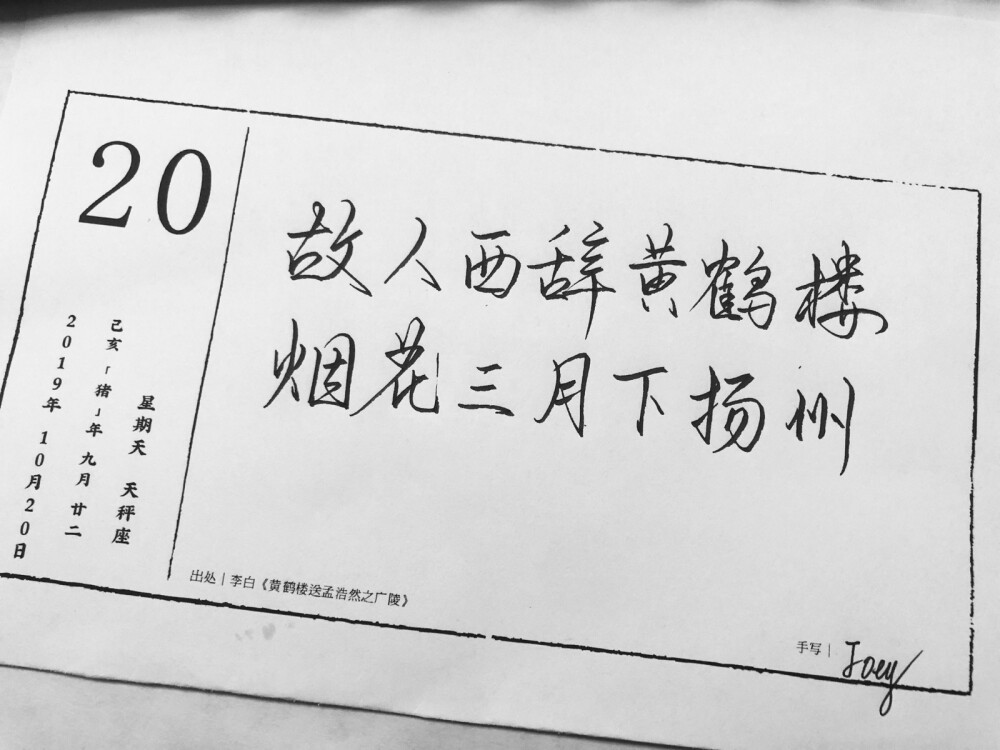 20
星期天 天秤座
己亥「猪」年 九月 廿二
2019年 10月20日
故人西辞黄鹤楼
烟花三月下扬州
出处 | 李白《黄鹤楼送孟浩然之广陵》
手写 | Joey